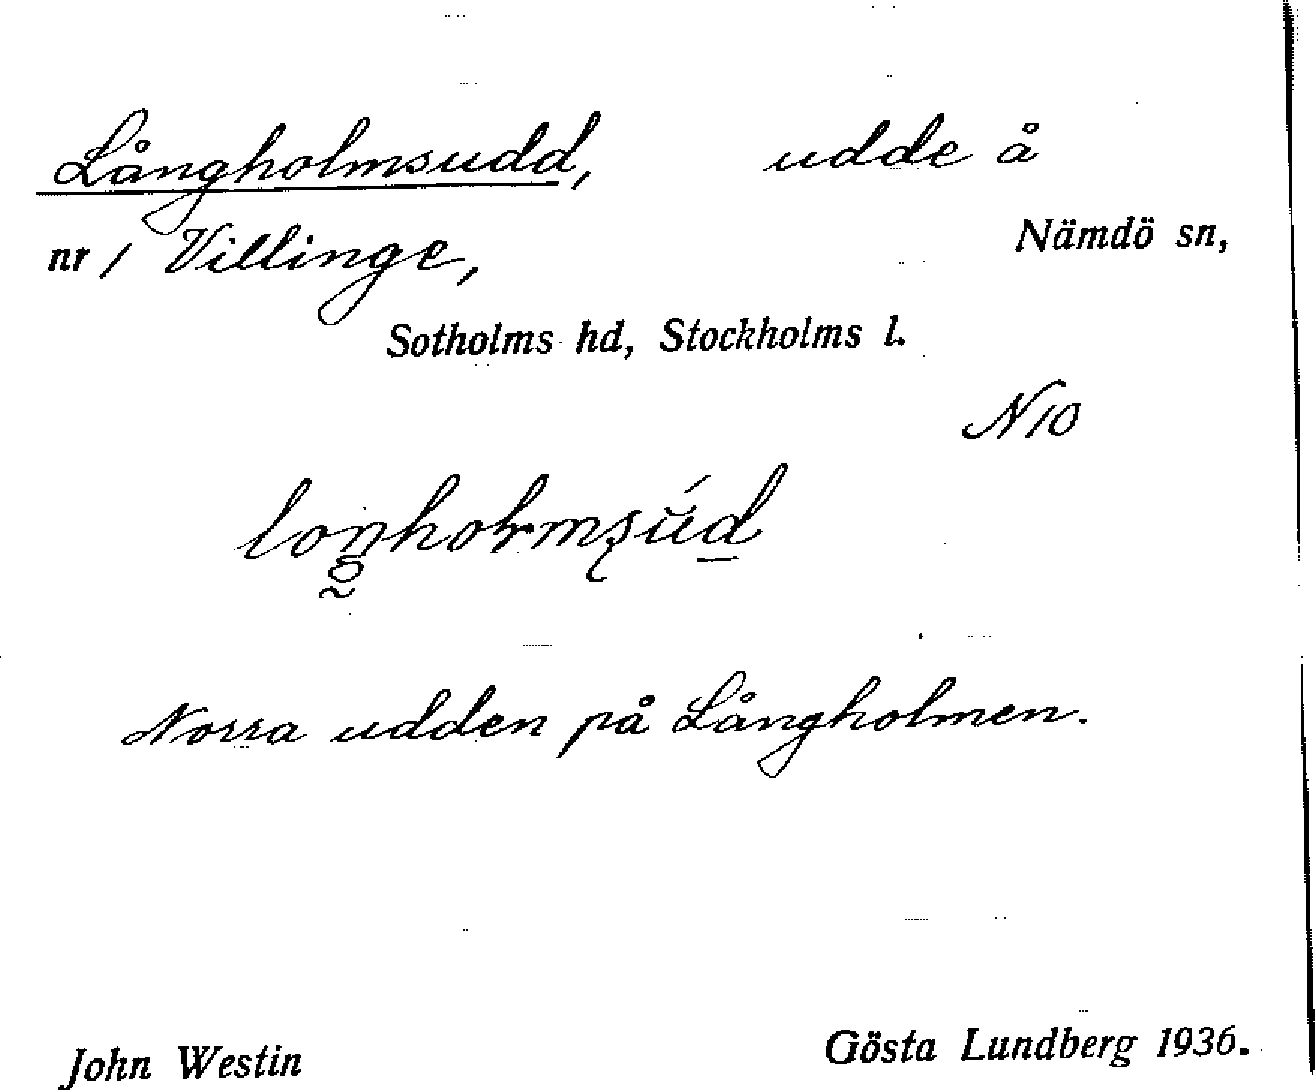 Långholmsudd, udde å
nr 1 Villinge, Nämdö sn,
Sotholms hd, Stockholms l.
N10
Norra udden på Långholmen.
John Westin Gösta Lundberg 1936.